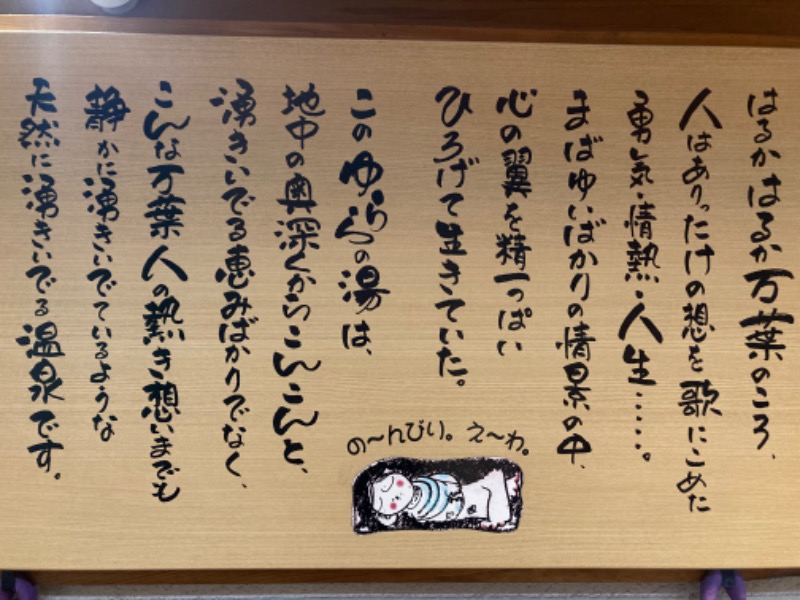 はるかはるか万葉のころ、
人はありったけの想を歌にこめた
勇気・情熱・人生……。
まばゆいばかりの情景の中、
心の翼を精一っぱい
ひろげて生きていた。
このゆららの湯は、
地中の奥深くからこんこんと、
湧きいでる恵みばかりでなく、
こんな万葉人の熱き想いまでも
静かに湧きいでているような
天然に湧きいでる温泉です。
の〜んびり。え〜わ。